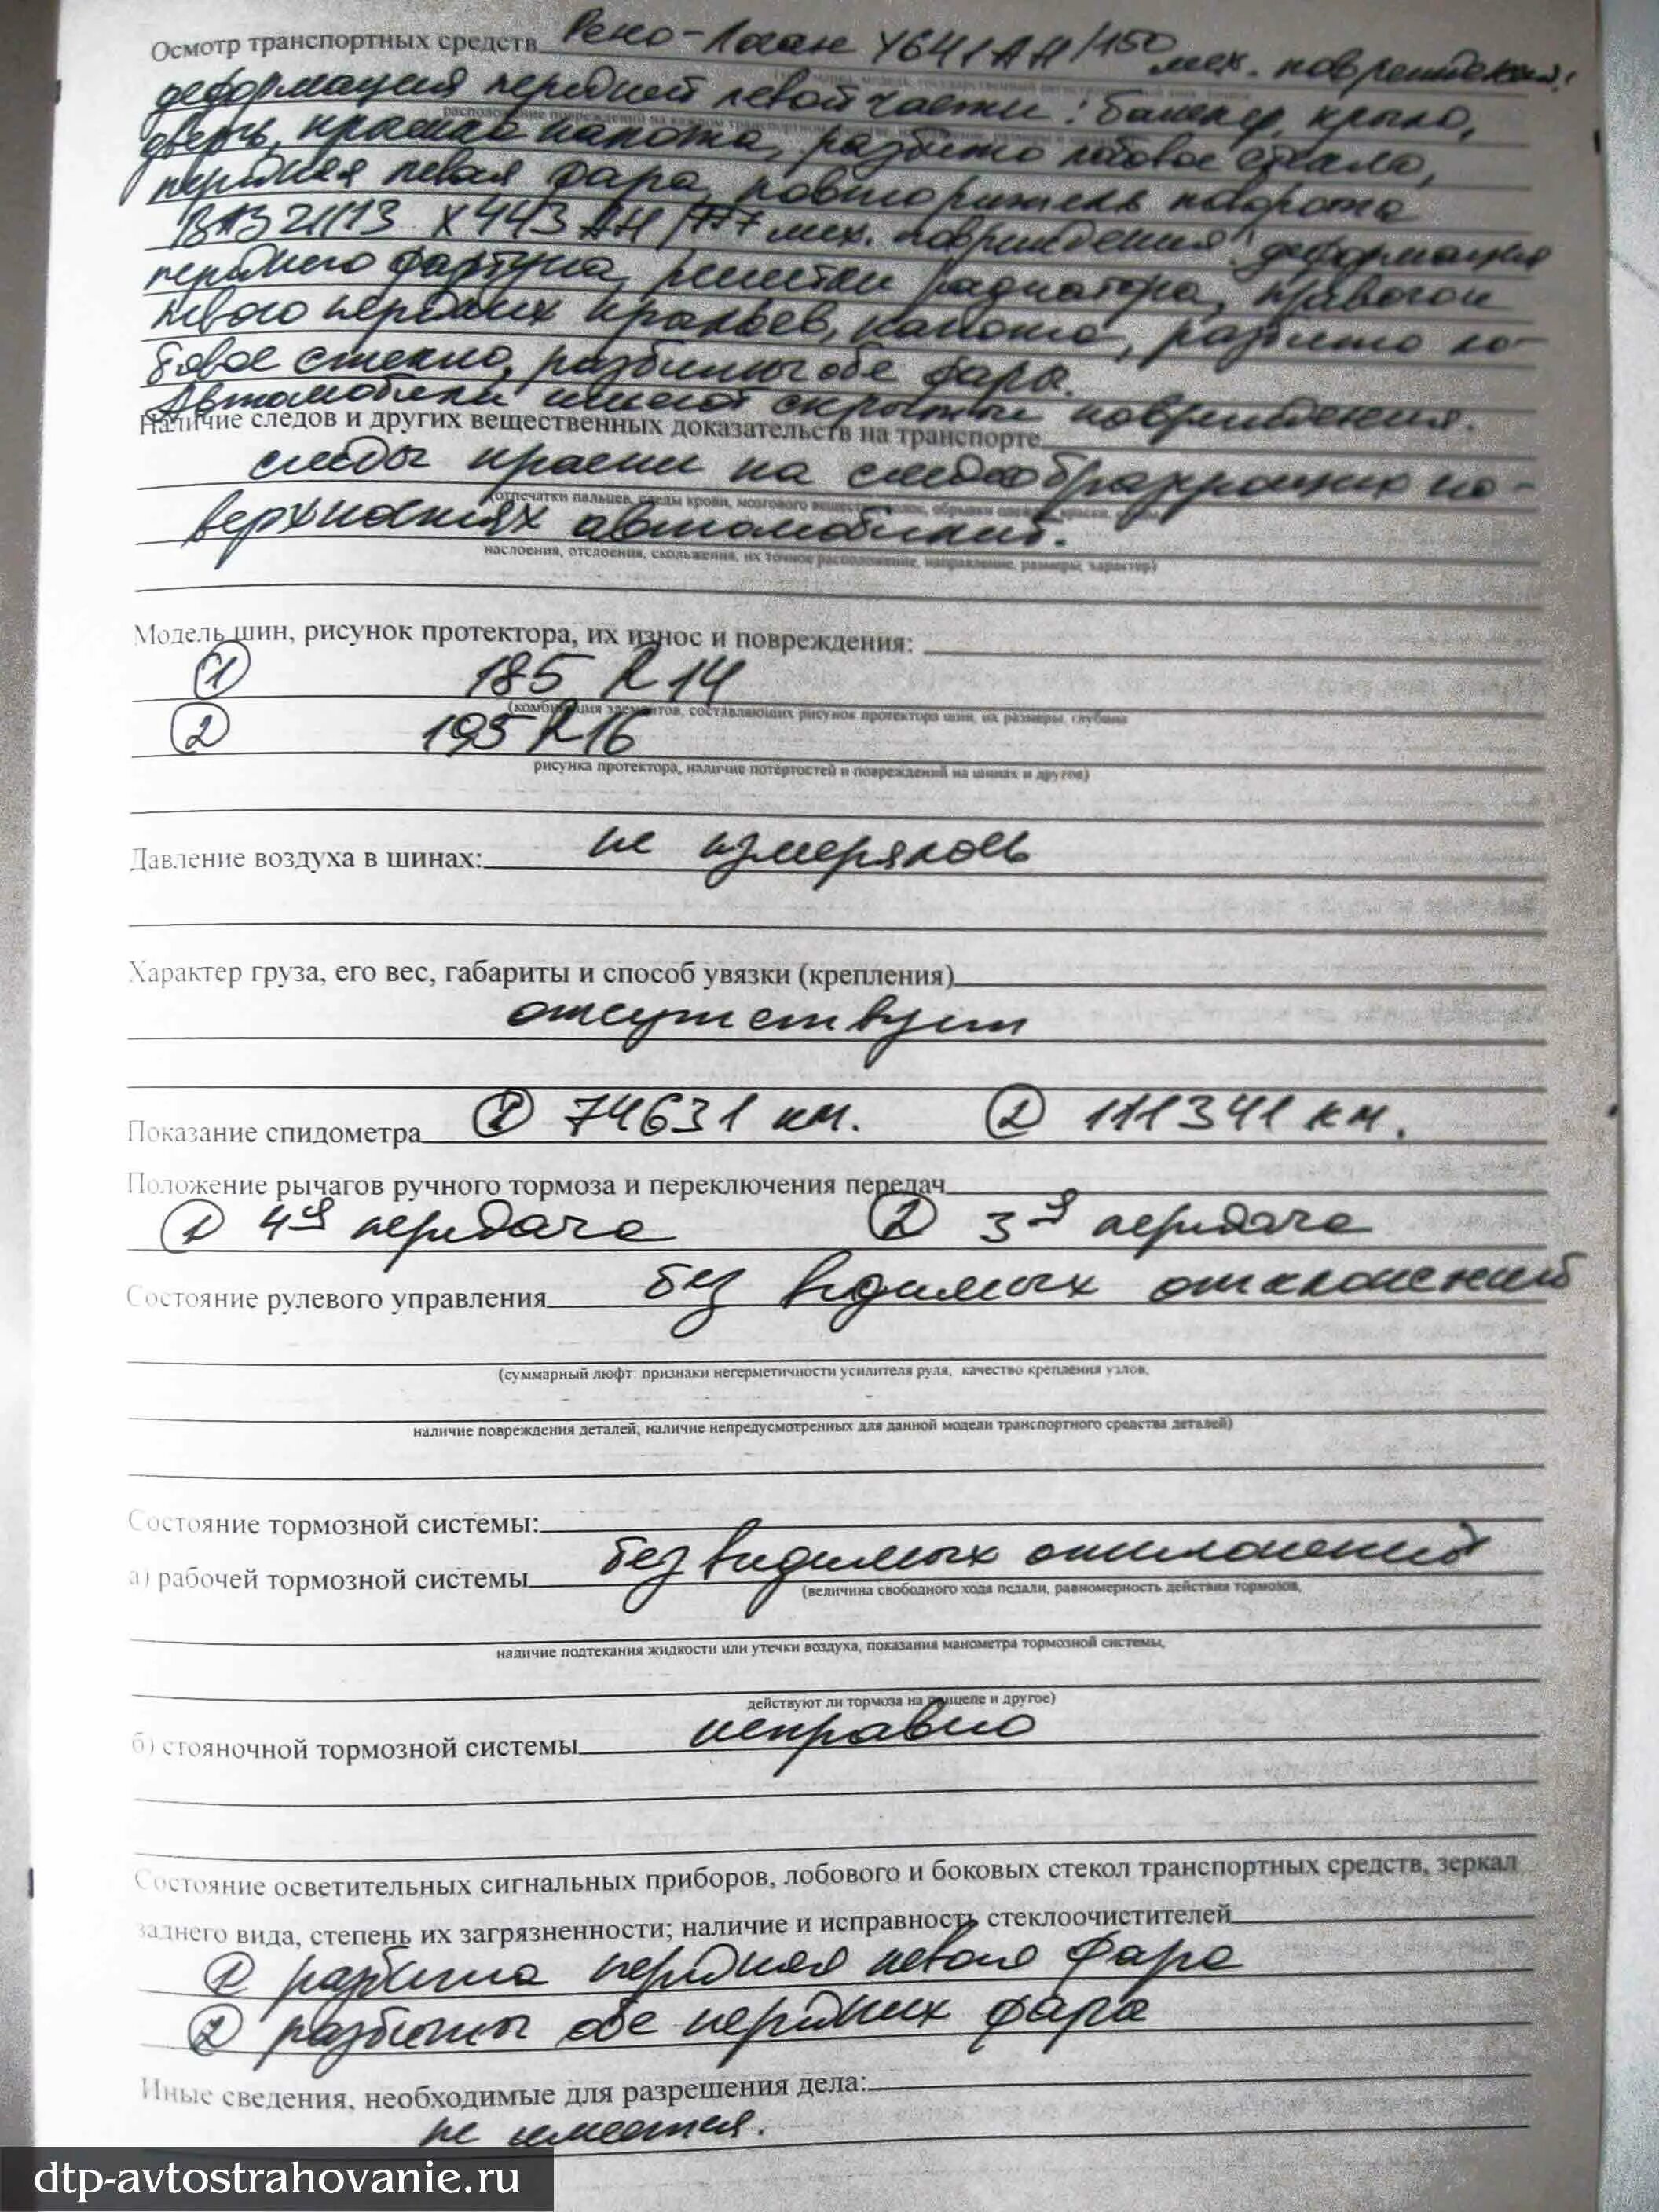 Осмотр транспортных средств Рено-Логан У641АН/150 мех. повреждения:
деформация передней левой части: бампер, крыло,
дверь, крышка капота, разбито лобовое стекло,
передняя левая фара, повторитель поворота
ВАЗ 21113 Х443АН/777 мех. повреждения: деформация
переднего фартука, решетки радиатора, правого и
левого передних крыльев, капота, разбито ло-
бовое стекло, разбиты обе фары.
Автомобили имеют скрытые повреждения.
Наличие следов и других вещественных доказательств на транспорте
следы краски на следообразующих по-
(отпечатки пальцев, следы крови, мозгового вещества,
верхностях автомобилей.
наслоения, отслоения, скольжения, их точное расположение, направление, размеры, характер)
Модель шин, рисунок протектора, их износ и повреждения:
1 185 R 14
(комбинация элементов, составляющих рисунок протектора шин, их размеры, глубина
2 195 R 16
рисунка протектора, наличие потёртостей и повреждений на шинах и другое)
Давление воздуха в шинах: не измерялось
Характер груза, его вес, габариты и способ увязки (крепления)
отсутствует
Показание спидометра 1 74631 км. 2 111341 км.
Положение рычагов ручного тормоза и переключения передач
1 4я передача 2 3я передача
Состояние рулевого управления без видимых отклонений
(суммарный люфт признаки негерметичности усилителя руля, качество крепления узлов,
наличие повреждения деталей; наличие непредусмотренных для данной модели транспортного средства деталей)
Состояние тормозной системы:
а) рабочей тормозной системы без видимых отклонений
(величина свободного хода педали, равномерность действия тормозов,
наличие подтекания жидкости или утечки воздуха, показания манометра тормозной системы,
действуют ли тормоза на прицепе и другое)
б) стояночной тормозной системы исправно
Состояние осветительных сигнальных приборов, лобового и боковых стекол транспортных средств, зеркал
заднего вида, степень их загрязненности; наличие и исправность стеклоочистителей
1 разбита передняя левая фара
2 разбиты обе передних фара
Иные сведения, необходимые для разрешения дела:
не имеется.
dtp-avtostrahovanie.ru